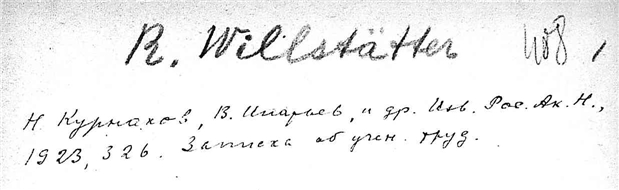 R. Willstätter 408,
Н. Курнаков, В. Ипатьев, и др. Изв. Рос. Ак. Н.,
1923, 326. Записка об учен. труд.